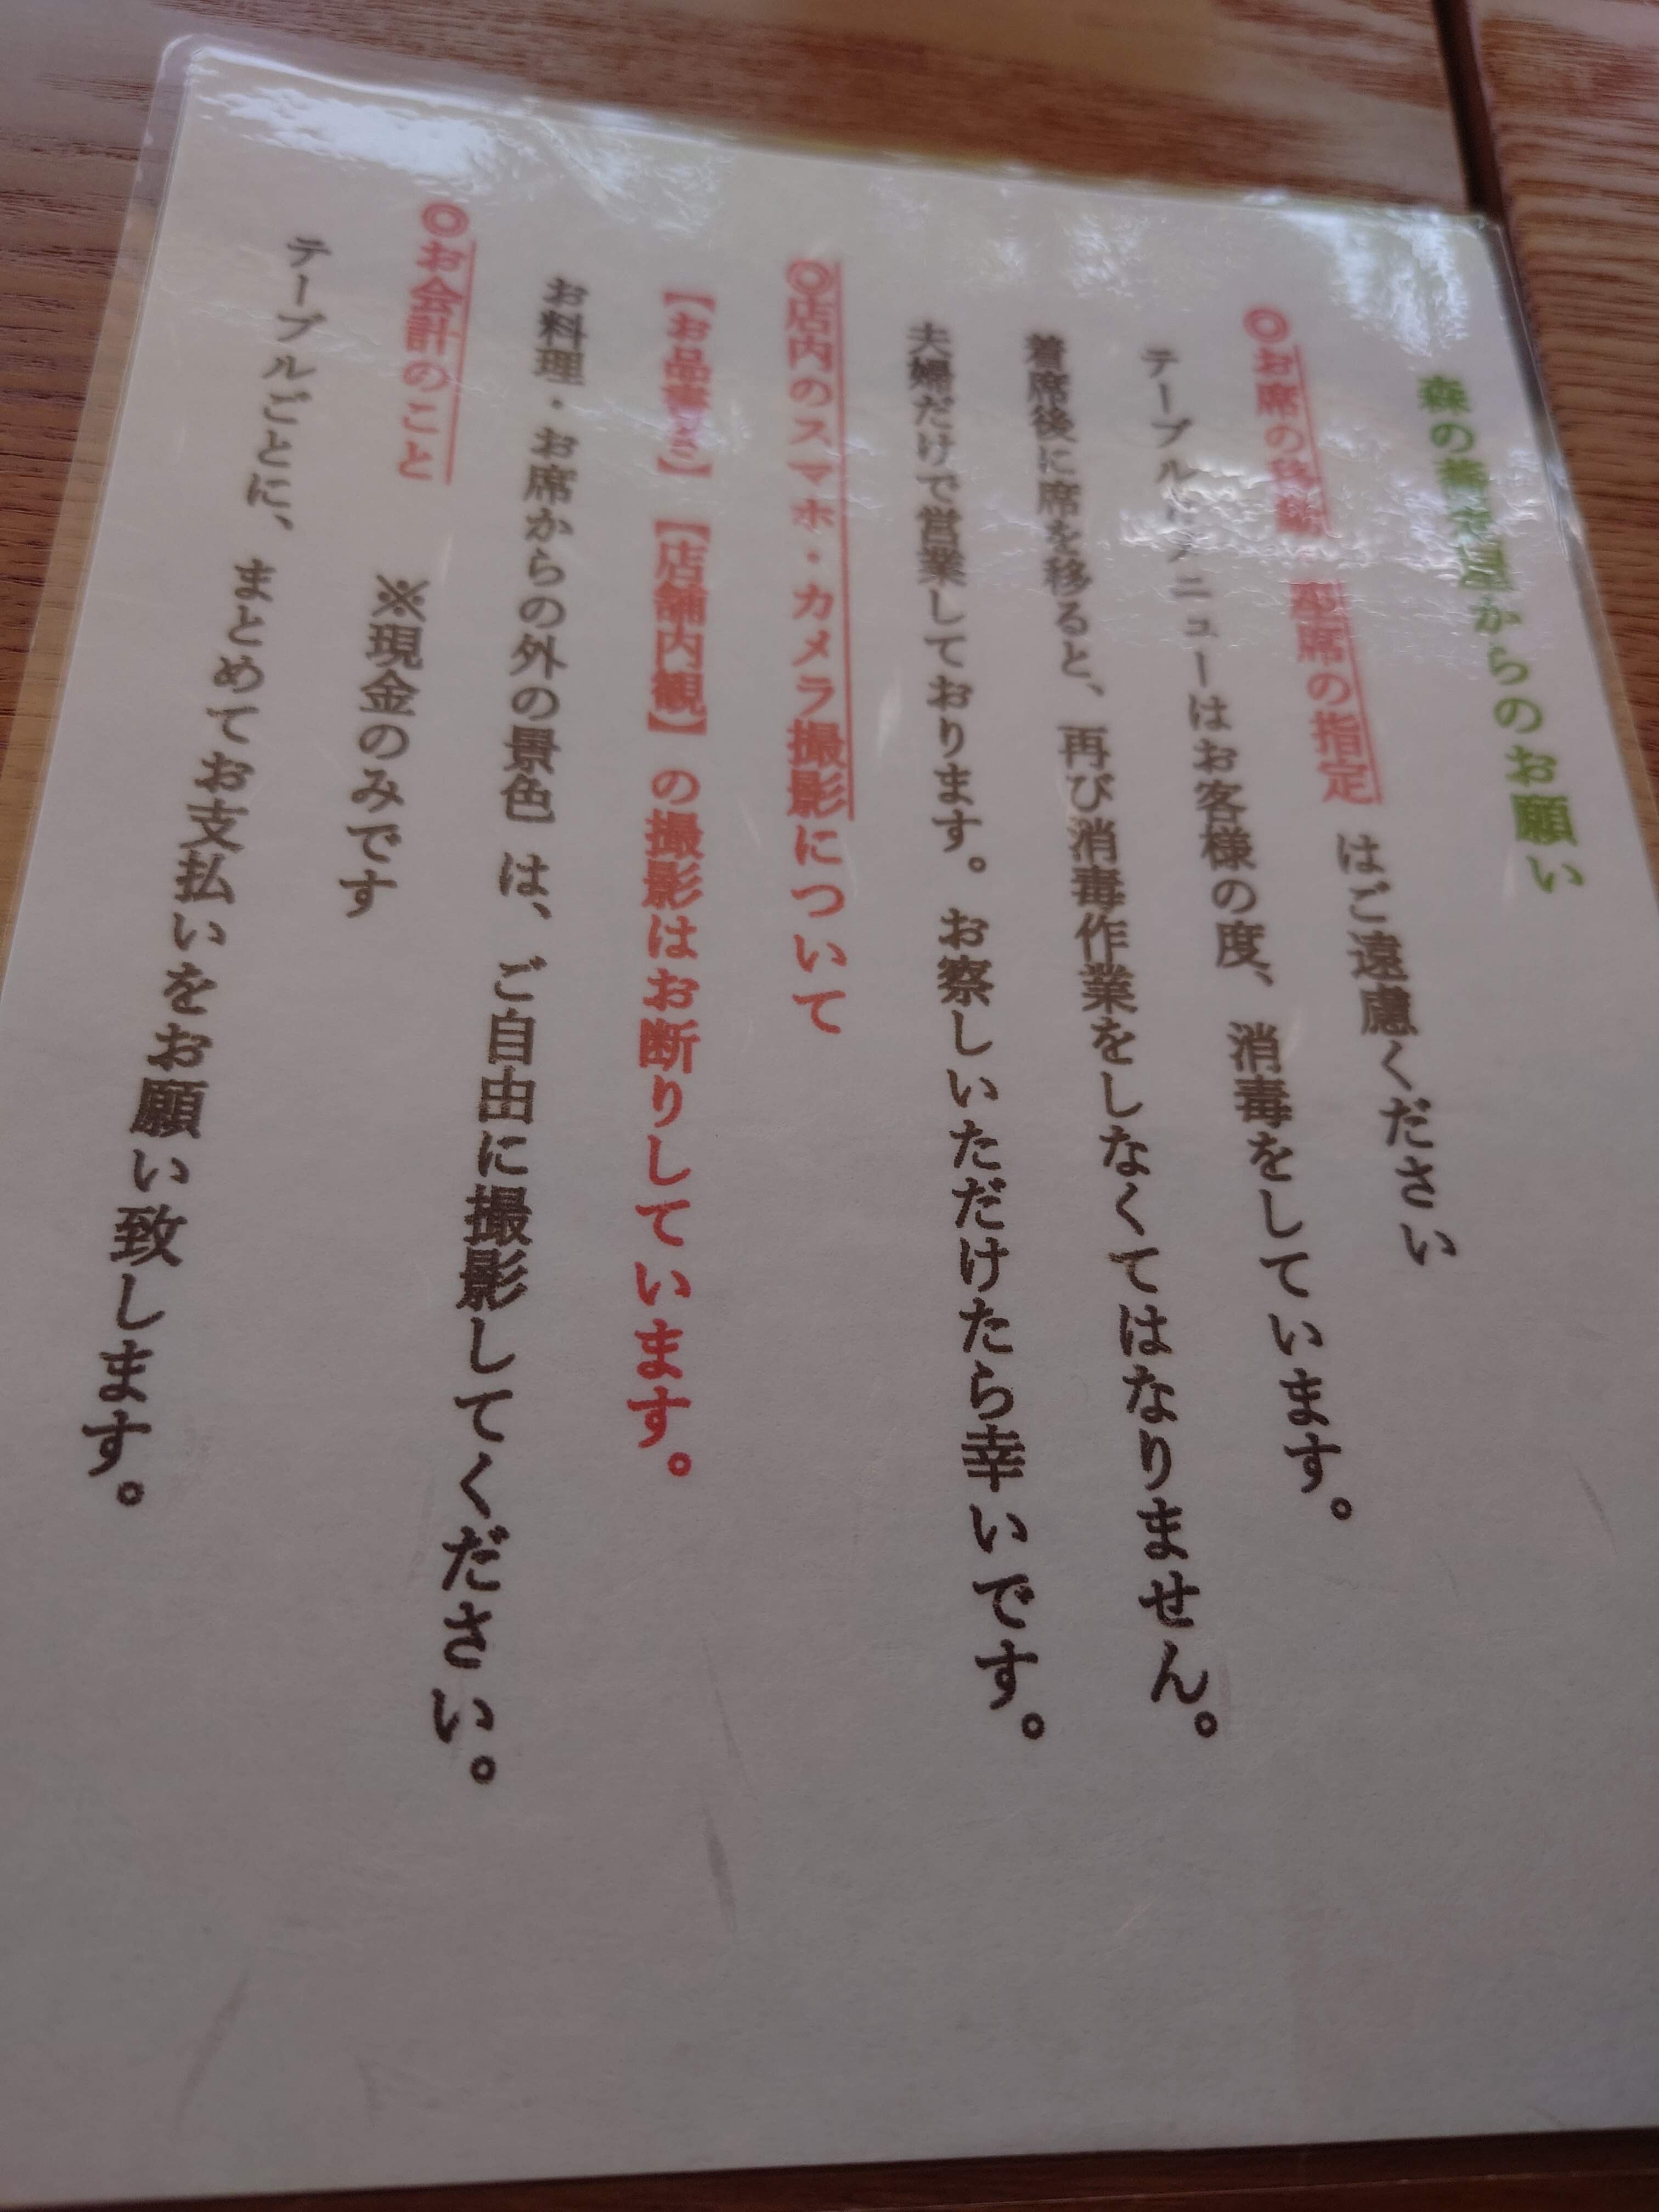 森の蕎麦屋からのお願い
◎お席の移動 座席の指定 はご遠慮ください
テーブル メニューはお客様の度、消毒をしています。
着席後に席を移ると、再び消毒作業をしなくてはなりません。
夫婦だけで営業しております。お察しいただけたら幸いです。
◎店内のスマホ・カメラ撮影について
【お品書き】【店舗内観】の撮影はお断りしています。
お料理・お席からの外の景色 は、ご自由に撮影してください。
◎お会計のこと ※現金のみです
テーブルごとに、まとめてお支払いをお願い致します。